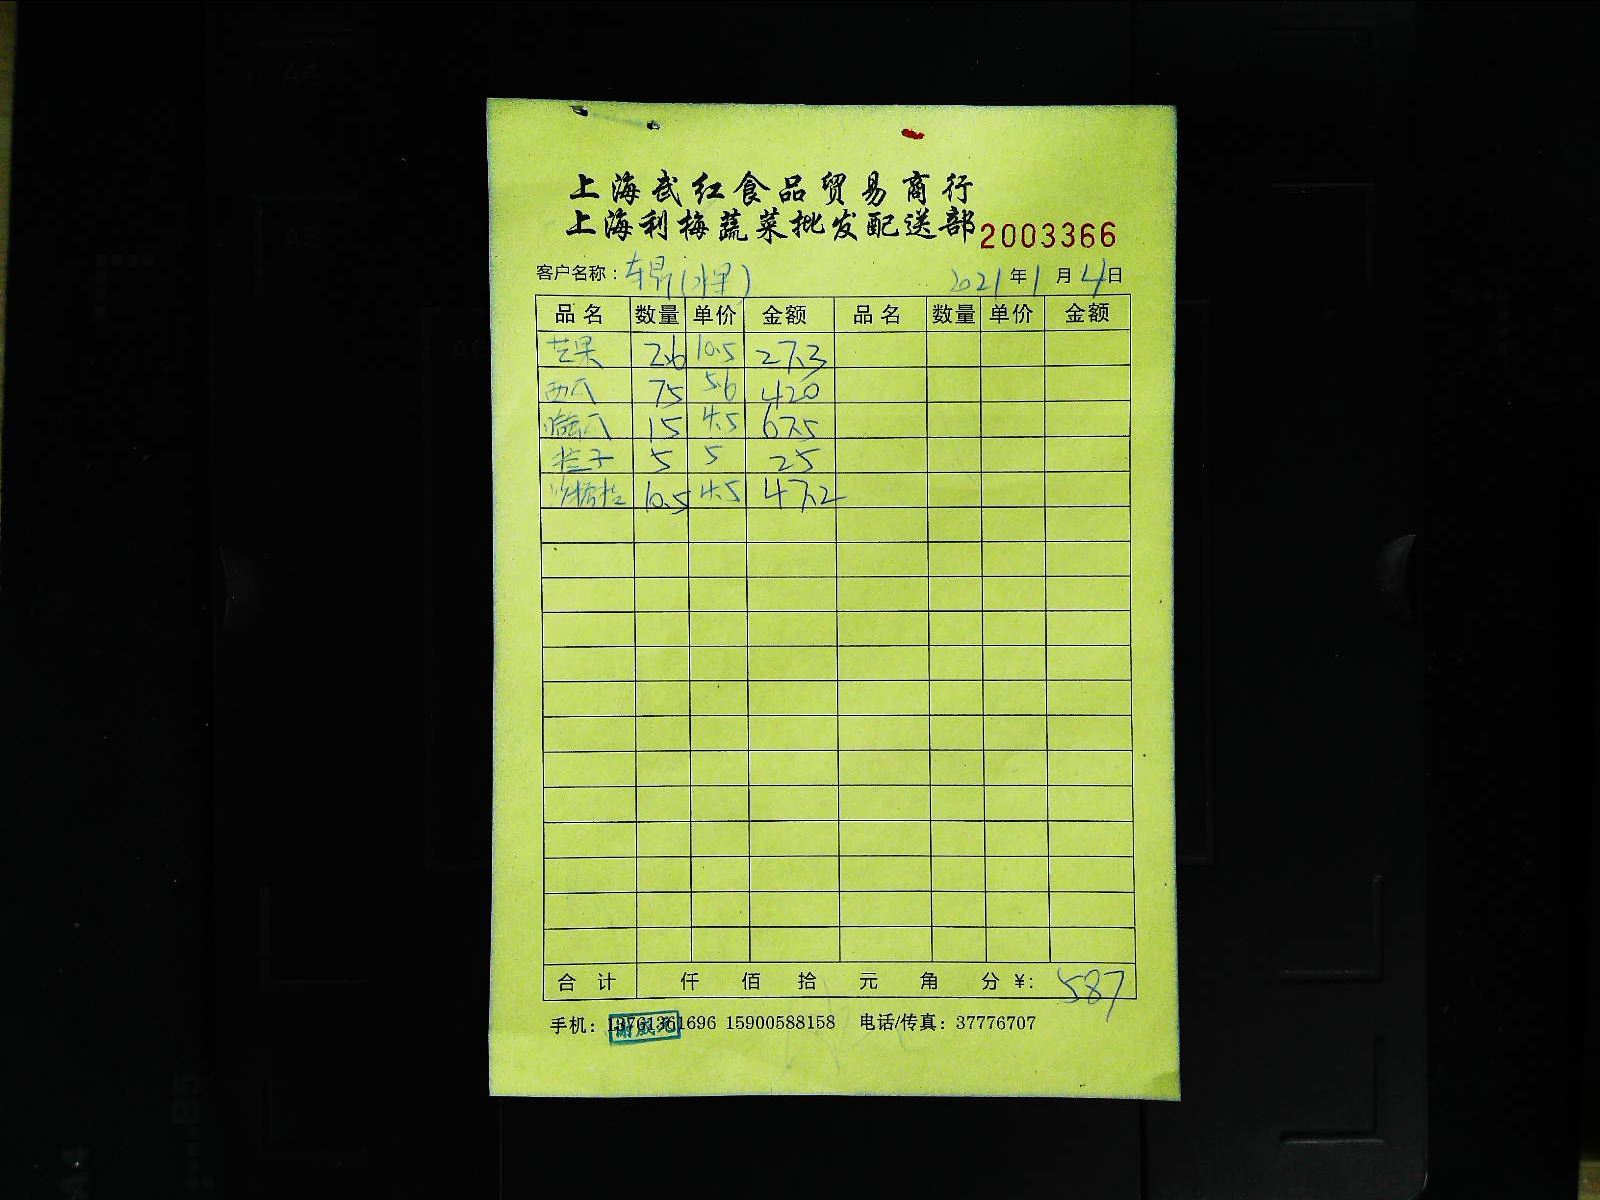 上海武红食品贸易商行
上海利梅蔬菜批发配送部 2003366
客户名称: (水果) 2021年1月4日
品名 数量 单价 金额 品名 数量 单价 金额
芒果 2.6 10.5 27.3
西瓜 75 5.6 420
瓜 15 4.5 67.5
桔子 5 5 25
沙糖桔 10.5 4.5 47.2
合计 仟 佰 拾 元 角 分 ¥: 587
手机: 13761361696 15900588158 电话/传真: 37776707